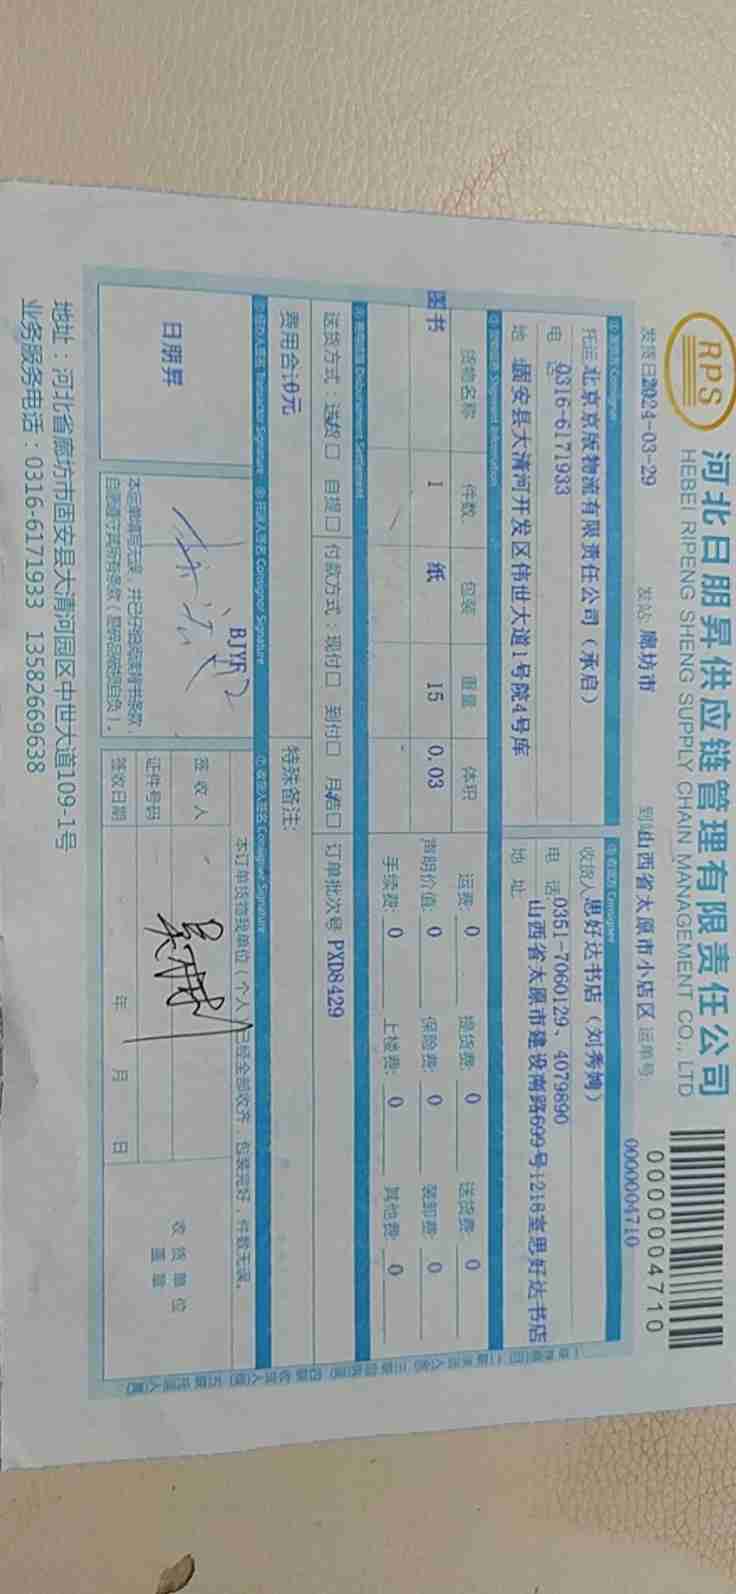 RPS
河北日朋昇供应链管理有限责任公司
HEBEI RIPENG SHENG SUPPLY CHAIN MANAGEMENT CO., LTD
0000004710
发货日2024-03-29 发站 廊坊市 到站山西省太原市小店区 运单号 0000004710
托运 北京京版物流有限责任公司（承启）
电话 0316-6171933
地 固安县大清河开发区伟世大道1号院4号库
收货人思好达书店（刘秀娉）
电 话 0351-7060129、4079890
地 址 山西省太原市建设南路699号1218室思好达书店
货物名称 件数 包装 重量 体积
图书 1 纸 15 0.03
运费: 0 提货费: 0 送货费: 0
声明价值: 0 保险费: 0 装卸费: 0
手续费: 0 上楼费: 0 其他费: 0
送货方式：送货口 自提口 付款方式：现付口 到付口 月结口 订单批次号 PXD8429
费用合计0元 特殊备注:
Transactor Signature Consignor Signature Consignee Signature
日朋昇
BJYR
本订单货物我单位（个人）已经全部收齐，包装完好，件数无误。
签 收 人
证件号码
签收日期 年 月 日
收 货 单 位
盖 章
地址：河北省廊坊市固安县大清河园区中世大道109-1号
业务服务电话：0316-6171933 13582669638